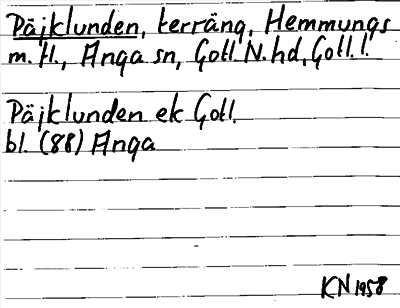 Päjklunden, terräng, Hemmungs
m. fl., Anga sn, Gotl. N. hd, Gotl. l.
Päjklunden ek Gotl.
bl. (88) Anga
KN 1958